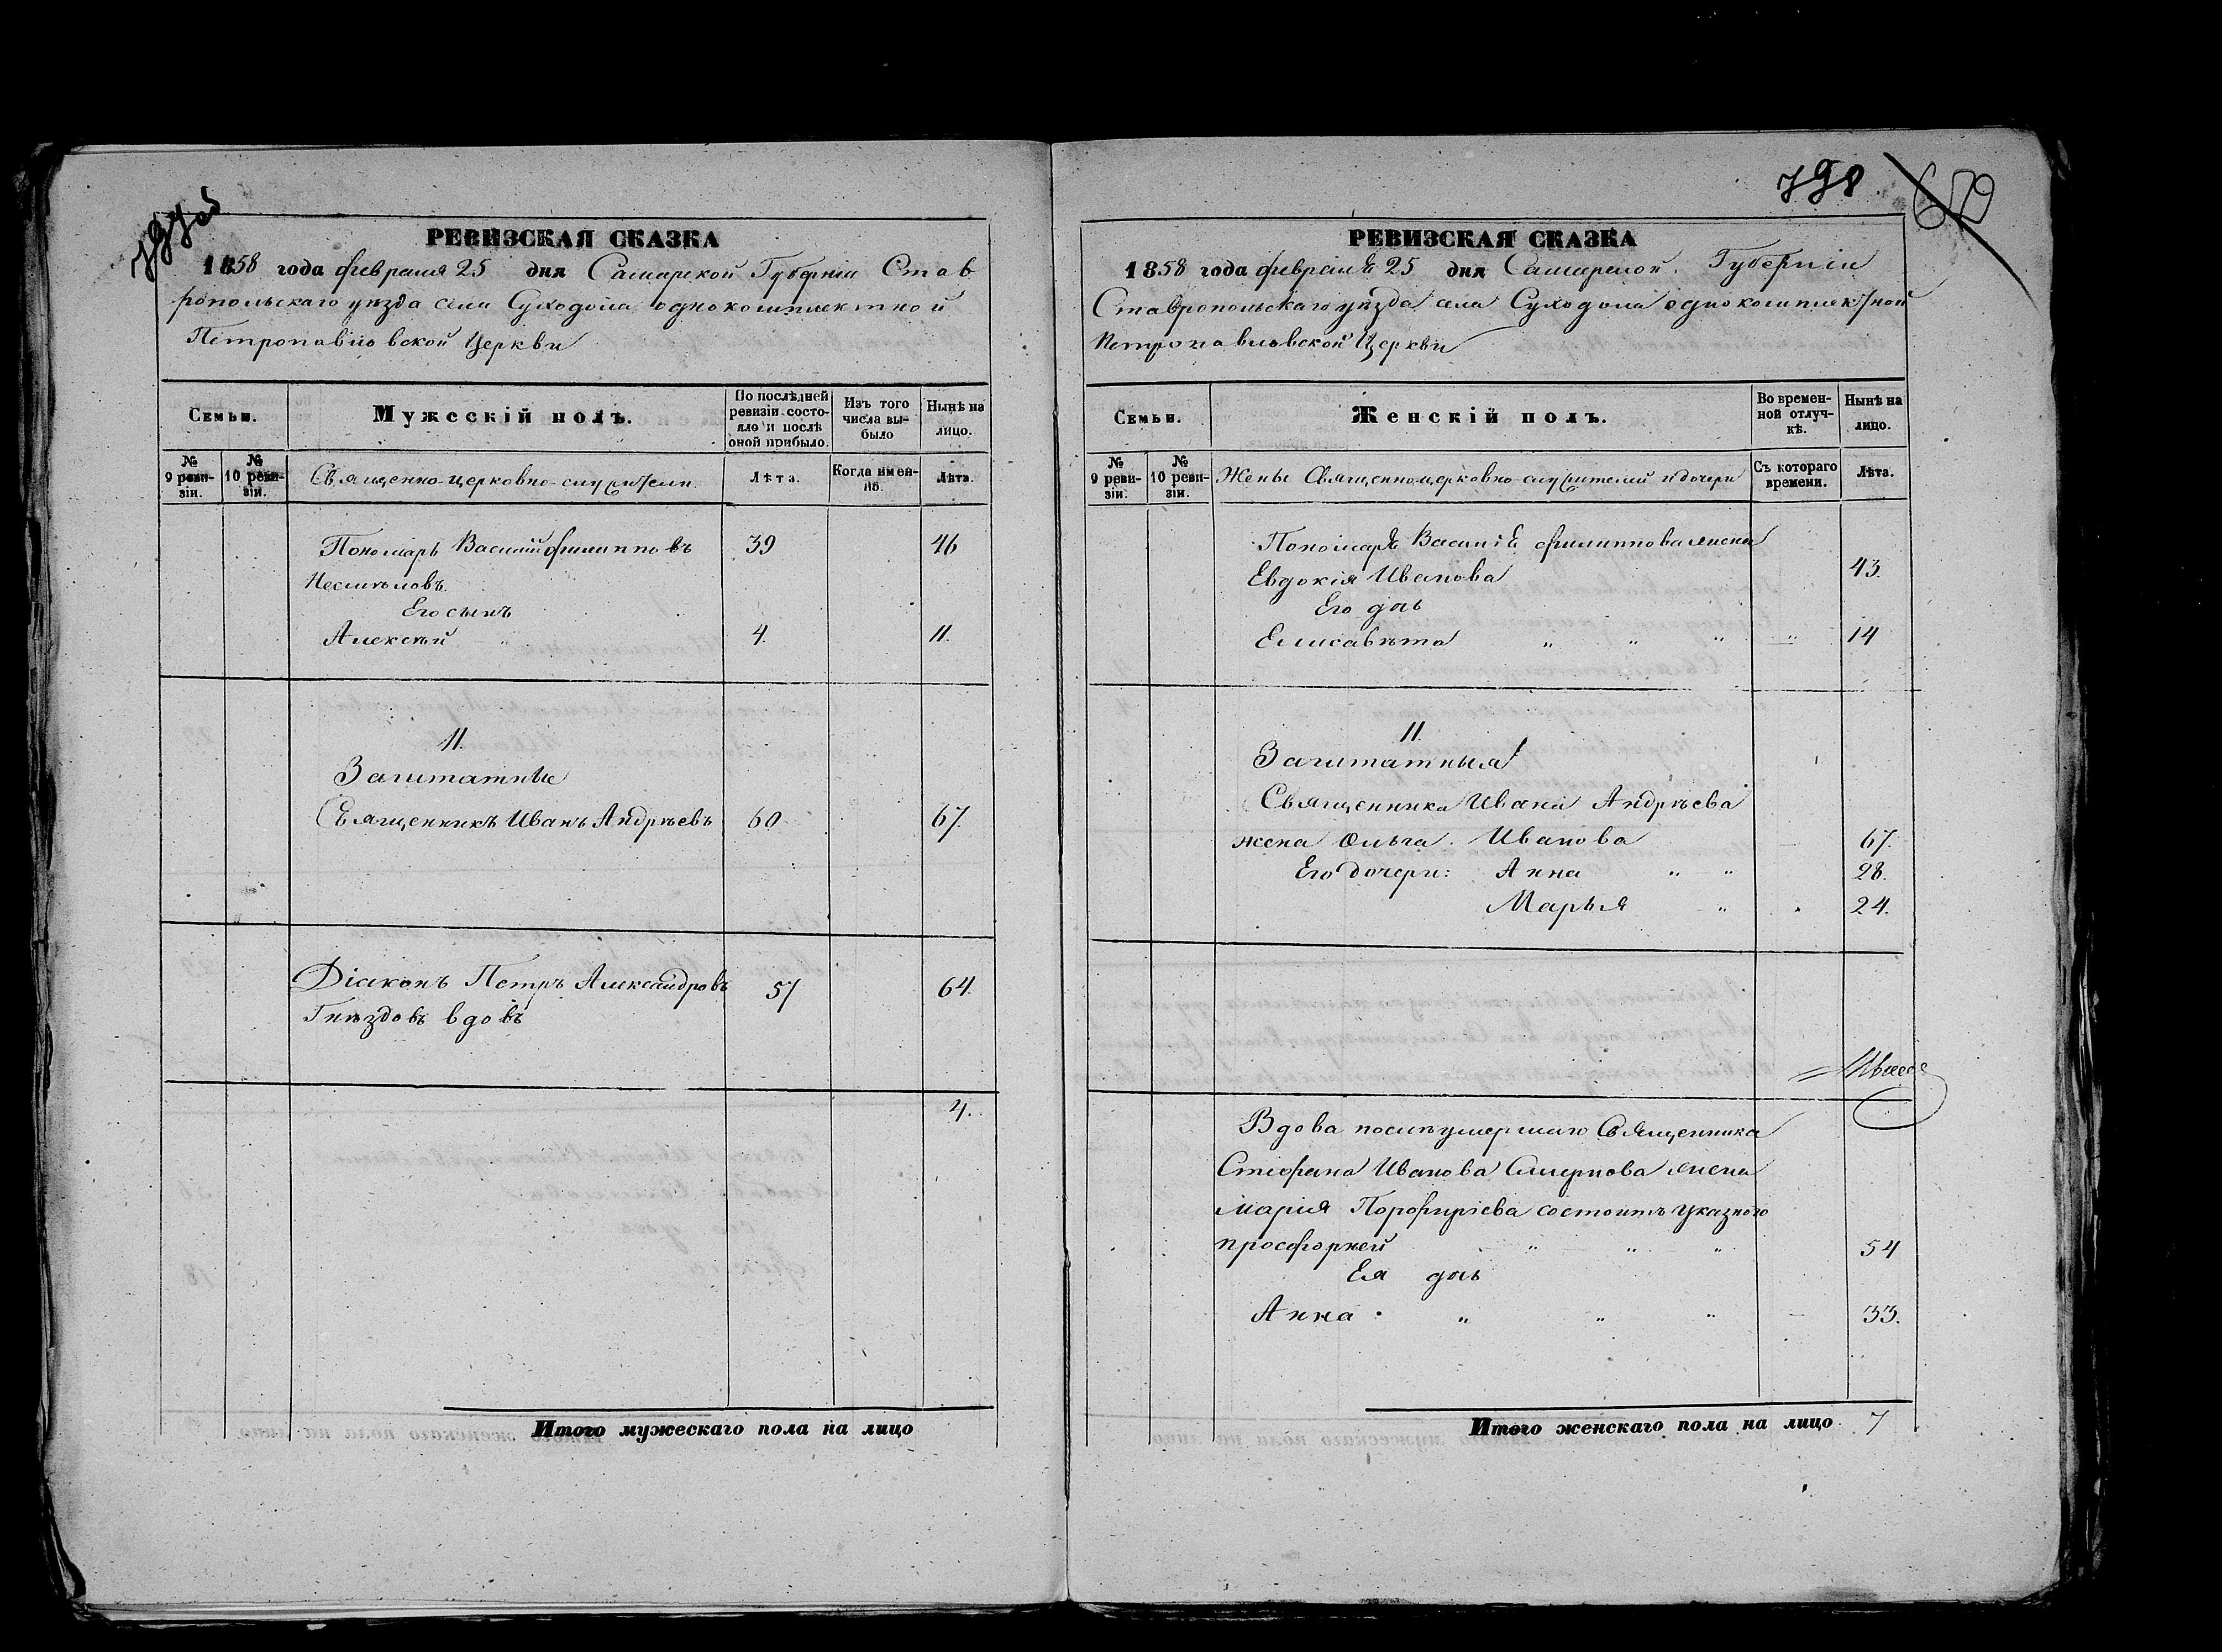 797об
РЕВИЗСКАЯ СКАЗКА
1858 года февраля 25 дня Самарской Губерніи Став
ропольскаго уѣзда села Суходола однокомплектной
Петропавловской Церкви
Семьи.
Мужескій полъ.
По послѣдней ревизіи состояло и послѣ оной прибыло.
Изъ того числа выбыло
Нынѣ на лицо.
№ 9 ревизіи.
№ 10 ревизіи.
Священно-церковно-служители.
Лѣта.
Когда именно.
Лѣта.
Пономарь Василій Филипповъ 39 46
Его сынъ
Алексѣй " 4. 11.
II.
Заштатные
Священникъ Иванъ Андрѣевъ 60 67.
Діаконъ Петръ Александровъ 57 64.
Гнѣздовъ вдовъ
4.
Итого мужескаго пола на лицо
798. 679
РЕВИЗСКАЯ СКАЗКА
1858 года февраля 25 дня Самарской Губерніи
Ставропольскаго уѣзда села Суходола однокомплектной
Петропавловской Церкви
Семьи.
Женскій полъ.
Во временной отлучкѣ.
Нынѣ на лицо.
№ 9 ревизіи.
№ 10 ревизіи.
Жены Священноцерковно-служителей и дочери
Съ котораго времени.
Лѣта.
Пономаря Василія Филиппова жена
Евдокія Иванова 43.
Его дчь
Елисавѣта " " " " 14
II.
Заштатныя
Священника Ивана Андрѣева
жена Ольга Иванова 67.
Его дочери: Анна " " 28.
Марья " 24.
Вдова послѣ умершаго Священника
Стефана Иванова Смирнова жена
Марія Порфиріева состоитъ указною
просфорней " " " 54
Ея дчь
Анна " " " 33.
Итого женскаго пола на лицо 7